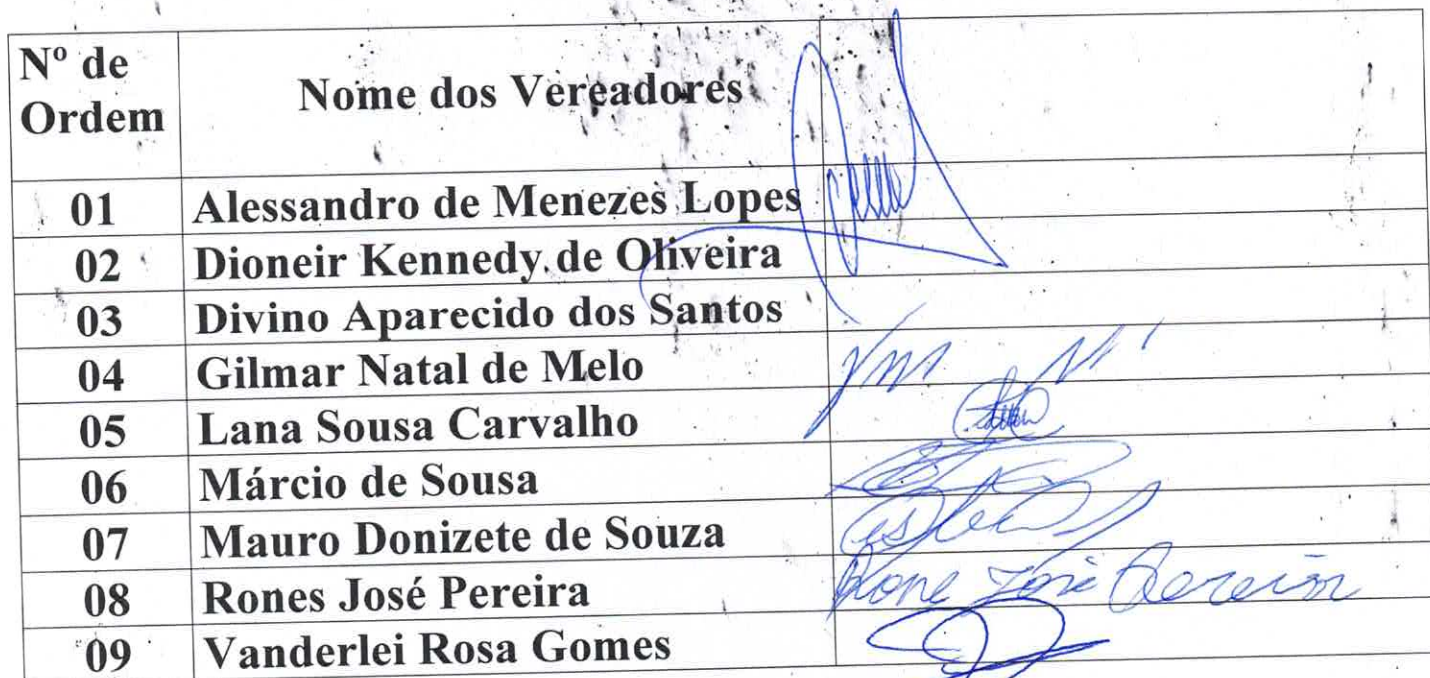 Nº de
Ordem
Nome dos Vereadores
01 Alessandro de Menezes Lopes
02 Dioneir Kennedy de Oliveira
03 Divino Aparecido dos Santos
04 Gilmar Natal de Melo
05 Lana Sousa Carvalho
06 Márcio de Sousa
07 Mauro Donizete de Souza
08 Rones José Pereira Rone José Pereira
09 Vanderlei Rosa Gomes